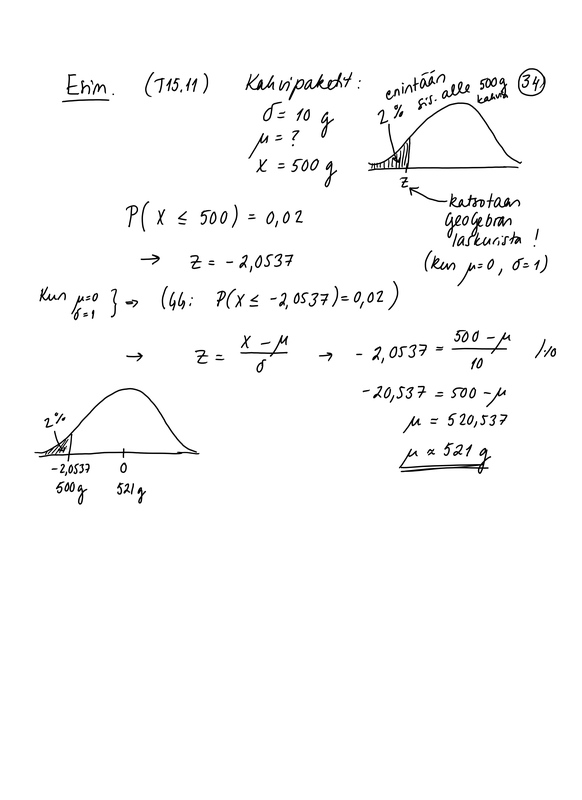 Esim. (T15.11) Kahvipaketit:
σ = 10 g
μ = ?
x = 500 g
enintään
2 % sis. alle 500g
kahvia
34
z
katsotaan
Geogebran
laskurista !
(kun μ=0, σ=1)
P( X ≤ 500) = 0,02
→ z = -2,0537
Kun μ=0
σ=1 } ⇒ (GG: P(X ≤ -2,0537) = 0,02 )
→ z = (x - μ)/σ → -2,0537 = (500 - μ)/10 |·10
-20,537 = 500 - μ
μ = 520,537
μ ≈ 521 g
2%
-2,0537 0
500g 521g